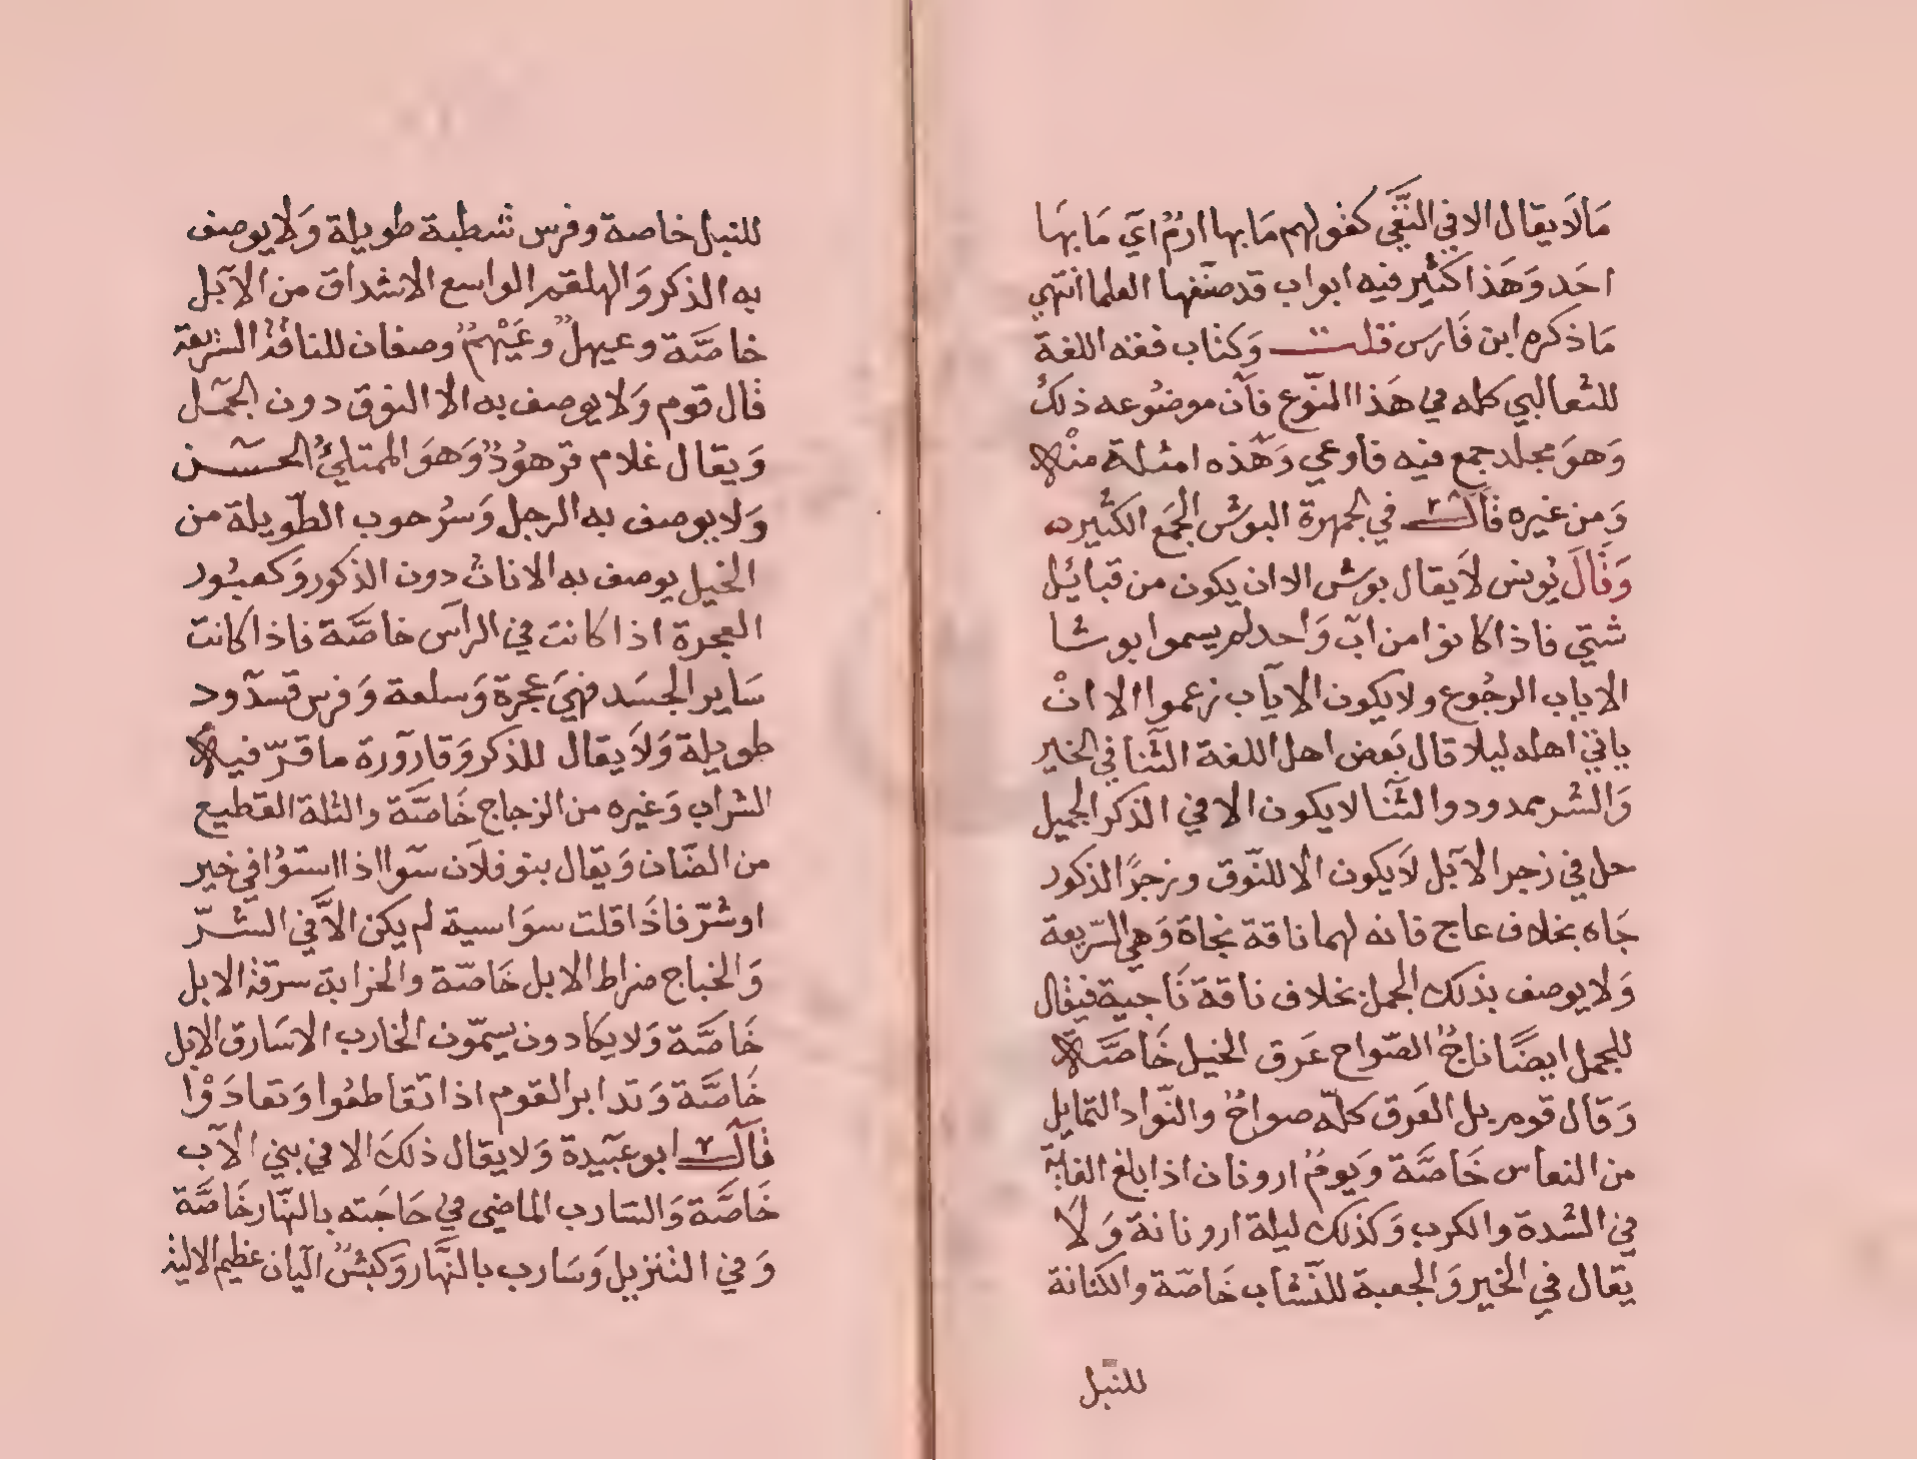 مَالَا يقال الا في النَّفَّي كقولهم مَا بها ارمٌ ايَ مَا بهَا
احَد وَهَذا كثير فيه ابواب قد صنّفها العلما انتهي
مَا ذكره ابن فَارسَ قلت وَكتاب فقه اللغة
للثعالبي كله في هَذا النّوع فآن موضُوعه ذلكَ
وَهوَ مجلد جمع فيه فاوعي وَهَذه امثلة منْها
وَمن غيره قَالَ في الجمهرة البوَش الجمَع الكثير ه
وَقَالَ يُونس لَا يقال بوَش الا ان يكون من قبائل
شتي فاذا كانوا من ابّ وَاحد لم يسموا بوشا
الاياب الرجُوع ولا يكون الايآب زعموا الا انْ
ياتي اهله ليلا قال بَعض اهل اللغة الثَنا في الخير
وَالشر ممدود والثَنا لا يكون الا في الذكر الجميل
حل في زجر الآبل لَا يكون الا للنّوق وزجرًا لذكور
جَاه بخلاف عاج فانه لهما ناقة نجاة وَهي السّريعة
وَلا يوصف بذلك الجمل بخلاف ناقة نَاجية فيقال
للجمل ايضًا ناجٌ الصّواح عَرق الخيل خَاصَّة
وَقال قوم بل العَرق كلّه صواحٌ والنّواد التمايل
من النعاس خَاصَّة وَيومٌ ارونان اذا بلغ الغاية
في الشدة والكرب وَكذلك ليلة ارونانة وَلَا
يقال في الخير وَالجعبة للنّشاب خَاصّة والكنانة
للنبل
للنبل خاصة وفرس شطبة طويلة وَلا يوصف
به الذكر وَالهلقم الواسع الاشداق من الآبل
خاصَّة وعيهلٌ وعَيْهمٌ وصفان للناقة السّريعة
قال قوم وَلا يوصف به الا النوق دون الجَمل
وَيقال غلام فرهُودٌ وَهوَ الممتليُ الحسَن
وَلا يوصف به الرجل وَسرُحوب الطّويلة من
الخيل يوصف به الاناث دون الذكور وَكعبُور
العجرة اذا كانت في الراَس خاصَّة فاذا كانت
سَاير الجسَد فهيَ عجرة وَسلعة وَفرس قسدّود
طويلة وَلَا يقال للذكر وَقارَورة ما قرّ فيها
الشراب وَغيره من الزجاج خَاصَّة والثلة القطيع
من الضّان وَيقال بنو فلاَن سَوا اذا استوُا في خير
او شرّ فاذَا قلت سوَاسية لم يكن الاَّ في الشرّ
وَالخباج ضراط الابل خَاصّة والخرابة سرَقة الابل
خَاصَّة وَلا يكادون يسمّون الخارب الا سَارق الابل
خَاصَّة وَتدابر القوم اذا تَقاطعُوا وَتعادَوْا
قَالَ ابو عبَيدة وَلا يقال ذلكَ الا في بني الآب
خَاصَّة وَالسَارب الماضي في حَاجَته بالنّهار خَاصَّة
وَفي التنزيل وَسَارب بالنَّهار وَكبشٌ الَيان عظيم الالية